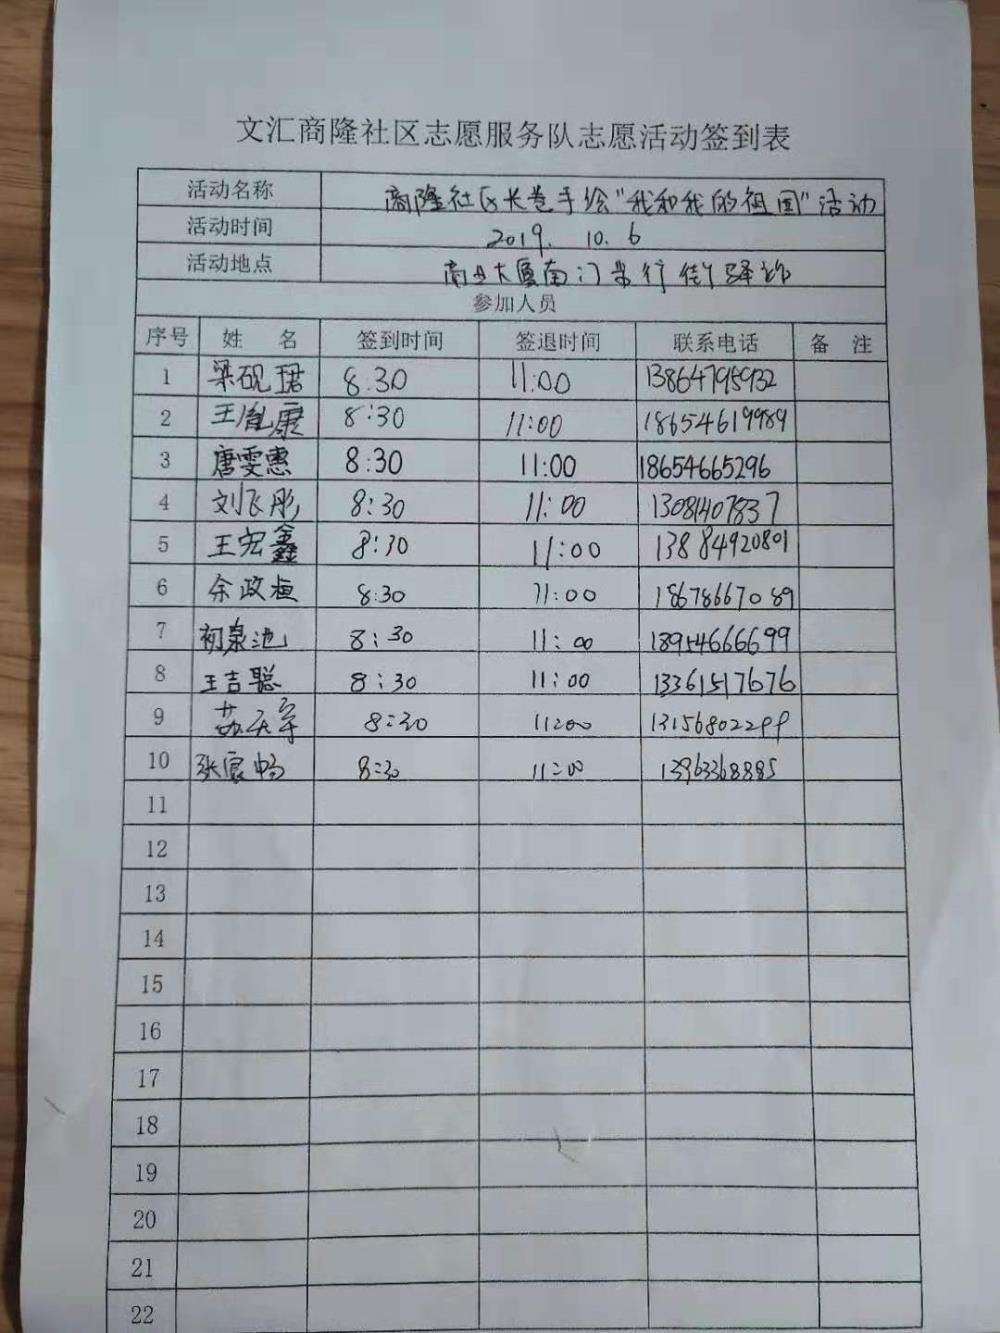 文汇商隆社区志愿服务队志愿活动签到表
活动名称 商隆社区长卷手绘"我和我的祖国"活动
活动时间 2019. 10. 6
活动地点 商业大厦南门步行街驿站
参加人员
序号 姓 名 签到时间 签退时间 联系电话 备 注
1 梁砚珺 8:30 11:00 13864795932
2 王胤康 8:30 11:00 18654619989
3 唐雯惠 8:30 11:00 18654665296
4 刘飞彤 8:30 11:00 13081407837
5 王宏鑫 8:30 11:00 13884920801
6 余政桓 8:30 11:00 18678667089
7 初泉池 8:30 11:00 18954666699
8 王吉聪 8:30 11:00 13361517676
9 8:30 11:00 13156802299
10 张宸畅 8:30 11:00 13963368885
11
12
13
14
15
16
17
18
19
20
21
22